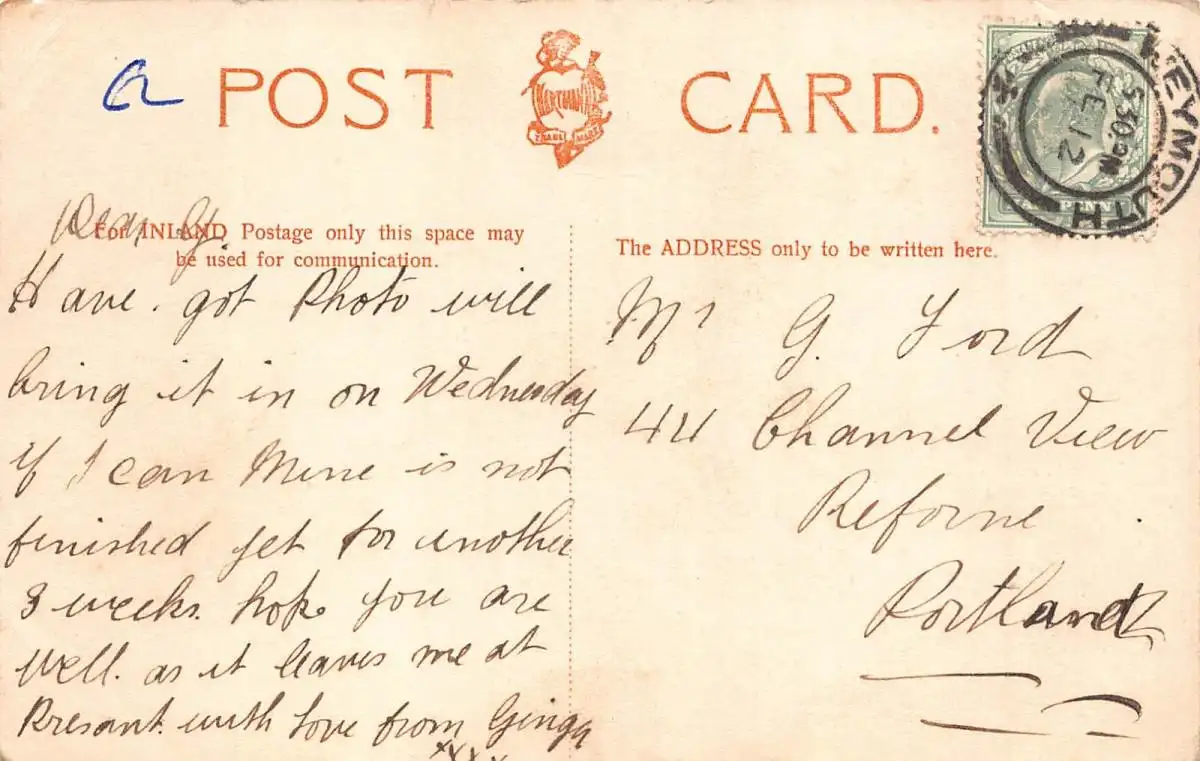 a
POST CARD.
HARTMANN
TRADE MARK
WEYMOUTH
5.30 PM
FE 12
PENNY
For INLAND Postage only this space may
be used for communication.
The ADDRESS only to be written here.
Dear G.
Have. got Photo will
bring it in on Wednesday
if I can Mine is not
finished yet for another
3 weeks. hope you are
well. as it leaves me at
Presant. with love from
xxxx
Mr G. Ford
44 Channel View
Reforne
Portland